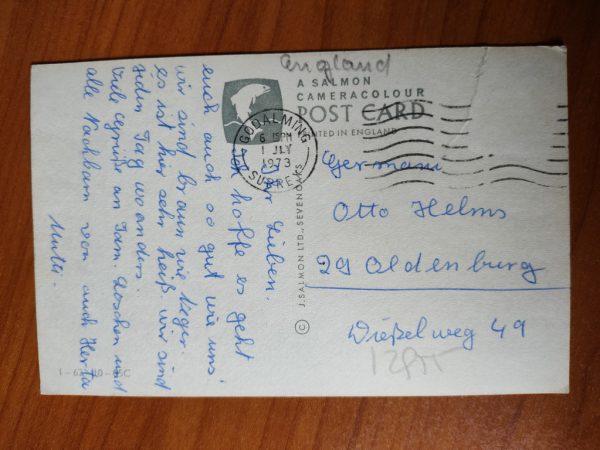 England
A SALMON
CAMERACOLOUR
POST CARD
PRINTED IN ENGLAND
GODALMING
6 15PM
1 JLY
1973
SURREY
Germany
Otto Helms
29 Oldenburg
Dießelweg 49
© J. SALMON LTD., SEVENOAKS
Ihr Lieben.
Ich hoffe es geht
euch auch so gut wie uns!
wir sind braun wie Neger.
es ist hier sehr heiß. wir sind
jeden Tag woanders.
Viele Grüße an Fam. und
alle Nachbarn von auch Herta
Mutti.